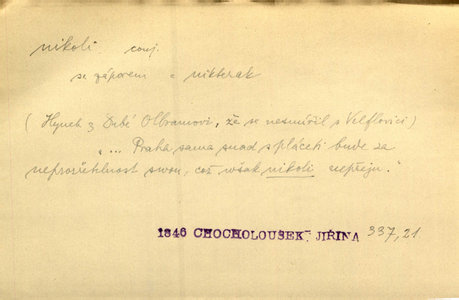 nikoli conj.
se záporem = nikterak
(Hynek z Dubé Olbramovi, že se nesmířil s Velflovici)
"... Praha sama snad spláceti bude za
neprozřetelnost swou, což však nikoli nepřeju."
1846 CHOCHOLOUŠEK: JIŘINA 337,21